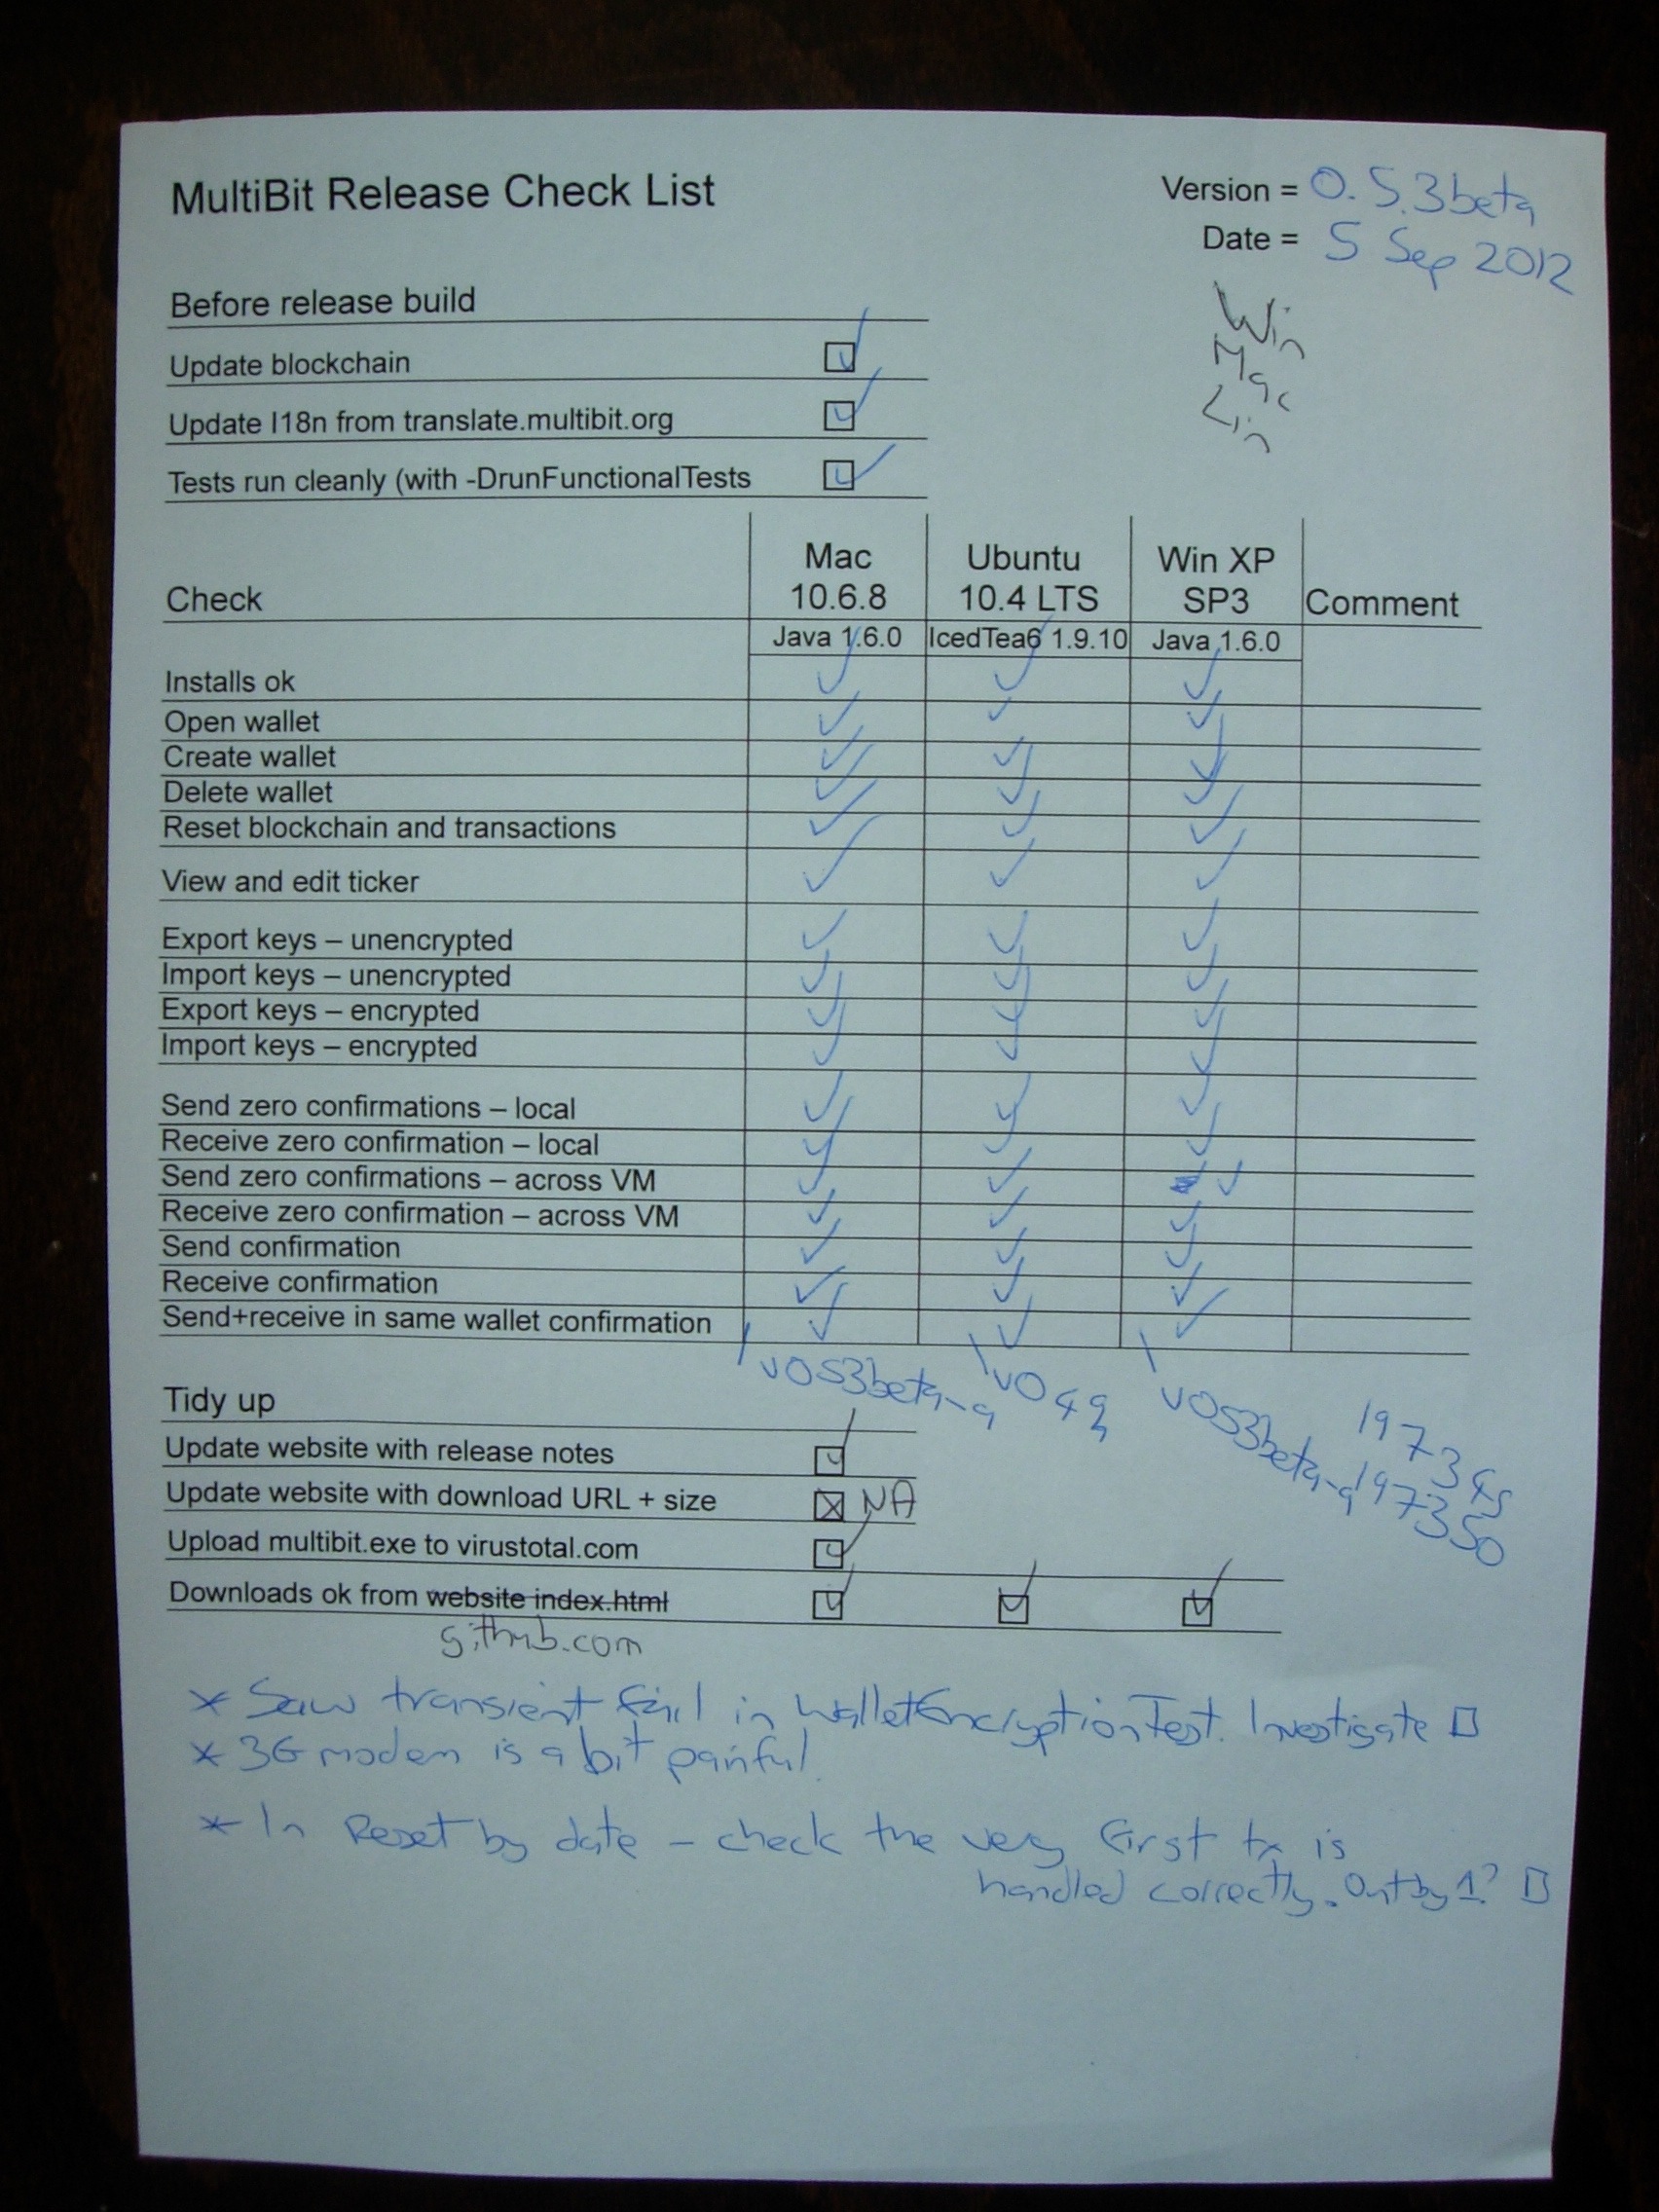 MultiBit Release Check List
Version = 0.5.3beta
Date = 5 Sep 2012
Win
Mac
Lin
Before release build
Update blockchain
Update I18n from translate.multibit.org
Tests run cleanly (with -DrunFunctionalTests
Check Mac 10.6.8 Ubuntu 10.4 LTS Win XP SP3 Comment
Java 1.6.0 IcedTea6 1.9.10 Java 1.6.0
Installs ok
Open wallet
Create wallet
Delete wallet
Reset blockchain and transactions
View and edit ticker
Export keys – unencrypted
Import keys – unencrypted
Export keys – encrypted
Import keys – encrypted
Send zero confirmations – local
Receive zero confirmation – local
Send zero confirmations – across VM
Receive zero confirmation – across VM
Send confirmation
Receive confirmation
Send+receive in same wallet confirmation
v053beta-a
v053beta-a
197345
197350
Tidy up
Update website with release notes
Update website with download URL + size NA
Upload multibit.exe to virustotal.com
Downloads ok from website index.html
github.com
* Saw transient fail in WalletEncryptionTest. Investigate
* 3G modem is a bit painful.
* In Reset by date - check the very first tx is
handled correctly. Out by 1?